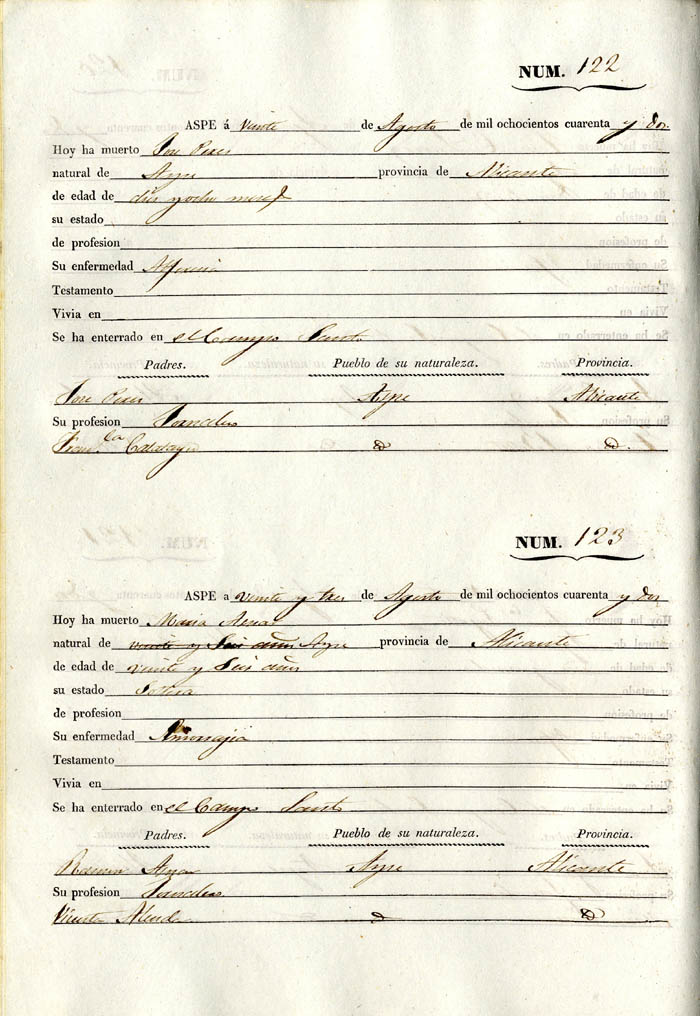 NUM. 122
ASPE á Veinte de Agosto de mil ochocientos cuarenta y dos
Hoy ha muerto Jose Peres
natural de Aspe provincia de Alicante
de edad de dies y ocho meses
su estado
de profesion
Su enfermedad
Testamento
Vivia en
Se ha enterrado en el Campo Santo
Padres. Pueblo de su naturaleza. Provincia.
Jose Peres Aspe Alicante
Su profesion Jornalero
Fran.ca Calatayu
NUM. 123
ASPE a veinte y tres de Agosto de mil ochocientos cuarenta y dos
Hoy ha muerto Maria
natural de veinte y Seis años Aspe provincia de Alicante
de edad de veinte y Seis años
su estado Soltera
de profesion
Su enfermedad
Testamento
Vivia en
Se ha enterrado en el Campo Santo
Padres. Pueblo de su naturaleza. Provincia.
Ramon Aspe Alicante
Su profesion Jornalero